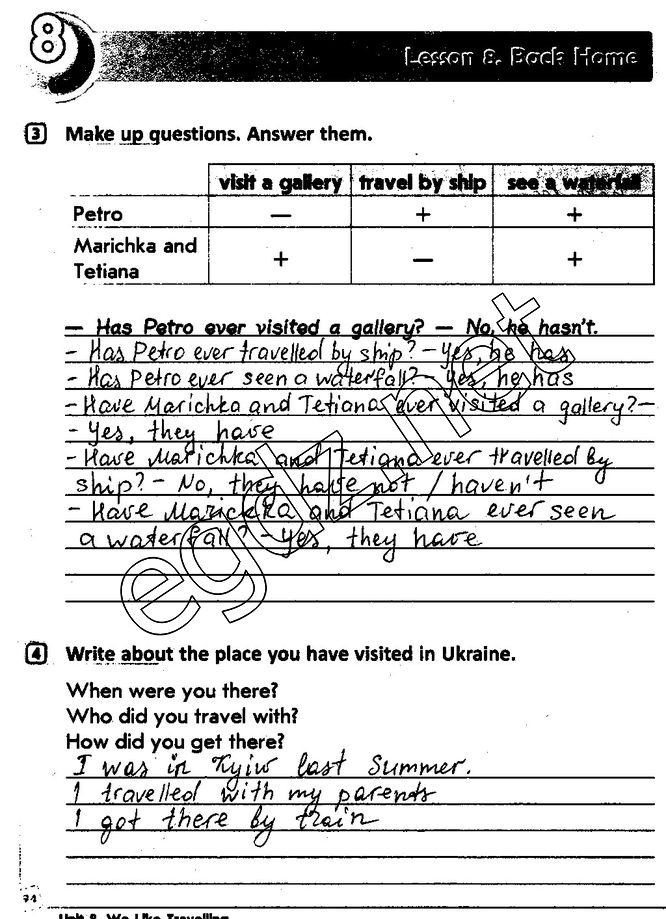 8
Lesson 8. Back Home
3 Make up questions. Answer them.
visit a gallery travel by ship see a waterfall
Petro — + +
Marichka and
Tetiana + — +
— Has Petro ever visited a gallery? — No, he hasn't.
- Has Petro ever travelled by ship? - Yes, he has
- Has Petro ever seen a waterfall? - Yes, he has
- Have Marichka and Tetiana ever visited a gallery? -
- Yes, they have
- Have Marichka and Tetiana ever travelled by
ship? - No, they have not / haven't
- Have Marichka and Tetiana ever seen
a waterfall? - Yes, they have
egdz.net
4 Write about the place you have visited in Ukraine.
When were you there?
Who did you travel with?
How did you get there?
I was in Kyiw last Summer.
I travelled with my parents
I got there by train
74
Unit 8. We Like Travelling